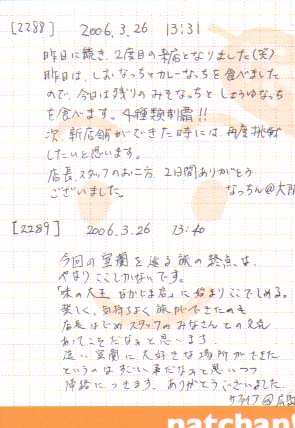 [2288] 2006.3.26 13:31
昨日に続き、2度目の来店となりました(笑)
昨日は、しおなっちとカレーなっちを食べました
ので、今日は残りのみそなっちとしょうゆなっち
を食べます。4種類制覇!!
次、新店舗ができた時には、再度挑戦
したいと思います。
店長、スタッフのお二方、2日間ありがとう
ございました。 なっちん@大阪
[2289] 2006.3.26 13:40
今回の室蘭を巡る旅の終点は、
やはりここしかないです。
「味の大王 に始まりここでしめる。
楽しく、気持ちよく旅ができたのも
店長はじめスタッフのみなさんとの
あってこそだなぁと思います
遠い室蘭に大好きな場所ができた
というのはすごい事だなぁと思いつつ
帰路につきます。ありがとうございました。
@広島
natchan